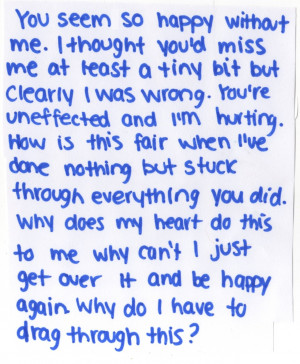 You seem so happy without
me. I thought you'd miss
me at least a tiny bit but
clearly I was wrong. You're
uneffected and I'm hurting.
How is this fair when I've
done nothing but stuck
through everything you did.
Why does my heart do this
to me why can't I just
get over it and be happy
again. Why do I have to
drag through this?